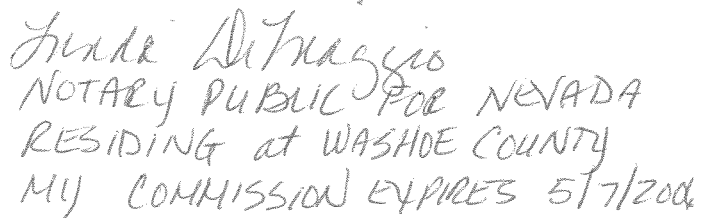 Linda DiMaggio
NOTARY PUBLIC FOR NEVADA
RESIDING at WASHOE COUNTY
MY COMMISSION EXPIRES 5/7/2006